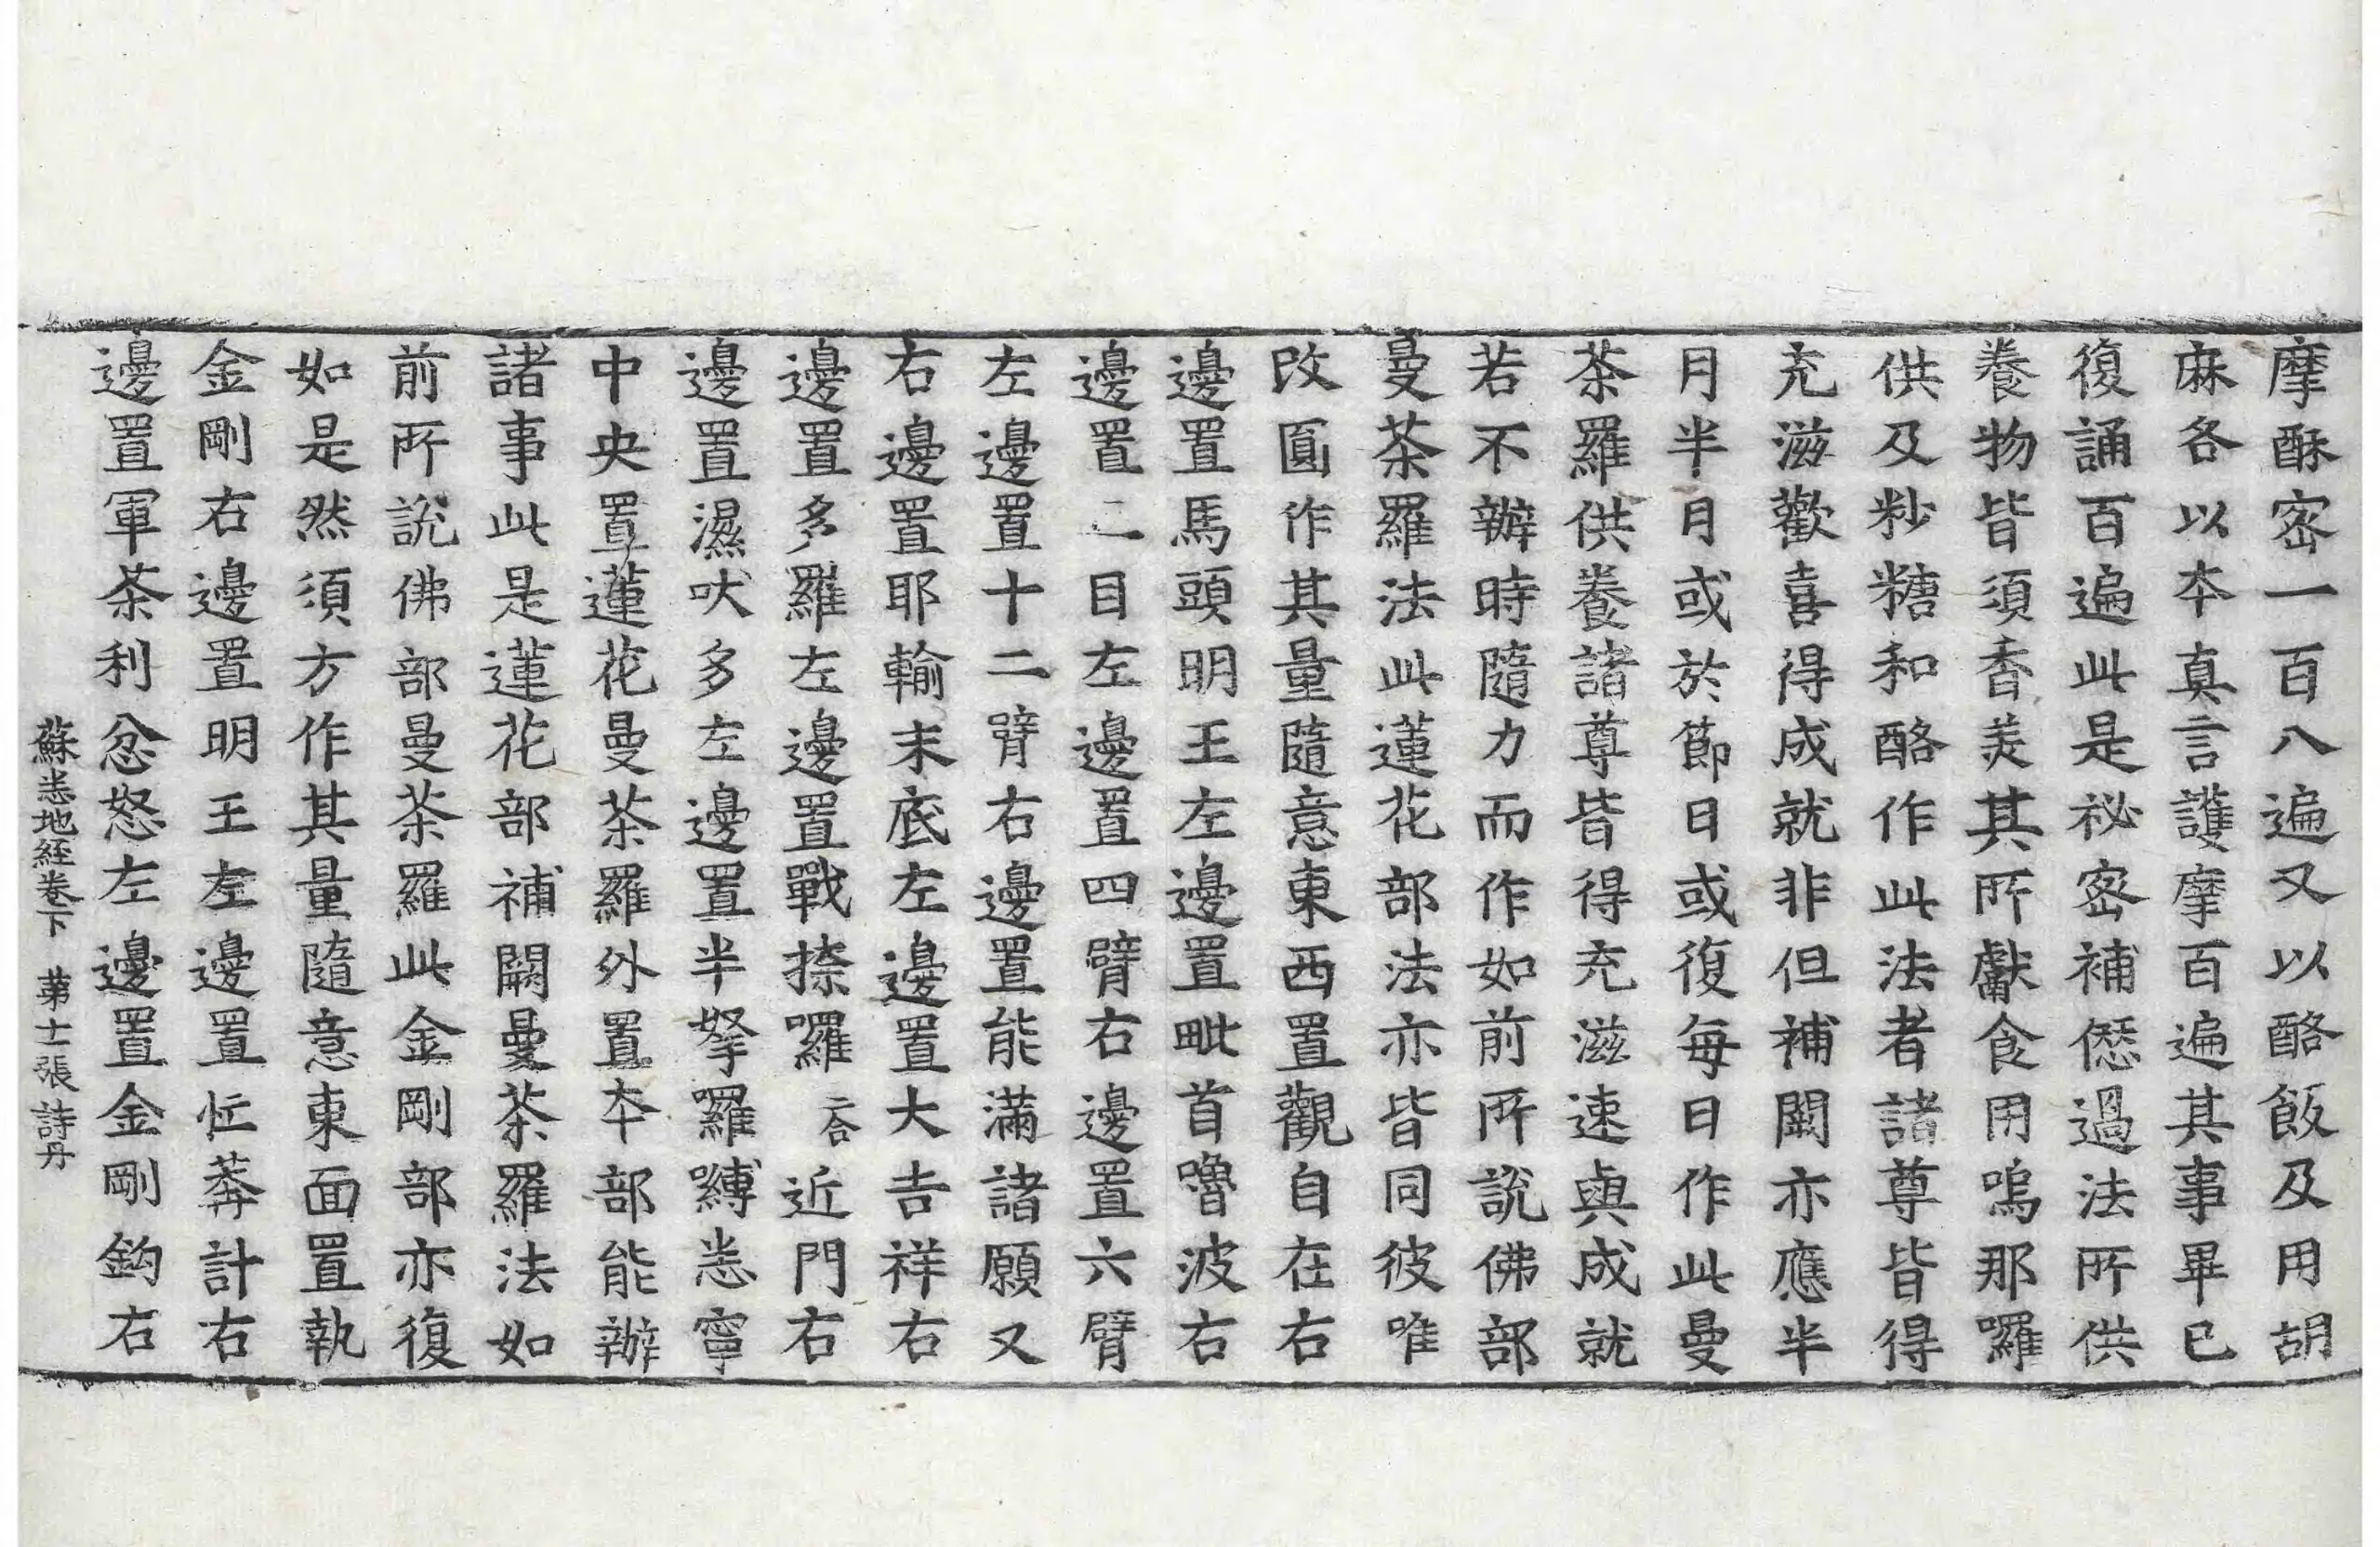 摩酥密一百八遍又以酪飯及用胡
麻各以本真言護摩百遍其事畢已
復誦百遍此是祕密補㥶過法所供
養物皆須香美其所獻食用嗚那囉
供及粆糖和酪作此法者諸尊皆得
充滋歡喜得成就非但補闕亦應半
月半月或於節日或復每日作此曼
茶羅供養諸尊皆得充滋速與成就
若不辦時隨力而作如前所說佛部
曼茶羅法此蓮花部法亦皆同彼唯
改圓作其量隨意東西置觀自在右
邊置馬頭明王左邊置毗首嚕波右
邊置二目左邊置四臂右邊置六臂
左邊置十二臂右邊置能滿諸願又
右邊置耶輸末底左邊置大吉祥右
邊置多羅左邊置戰捺囉二合近門右
邊置濕吠多左邊置半拏囉嚩悉寧
中央置蓮花曼茶羅外置本部能辦
諸事此是蓮花部補闕曼茶羅法如
前所說佛部曼茶羅此金剛部亦復
如是然須方作其量隨意東面置執
金剛右邊置明王左邊置忙莽計右
邊置軍茶利忿怒左邊置金剛鈎右
蘇悉地經卷下 第十二張 詩丹